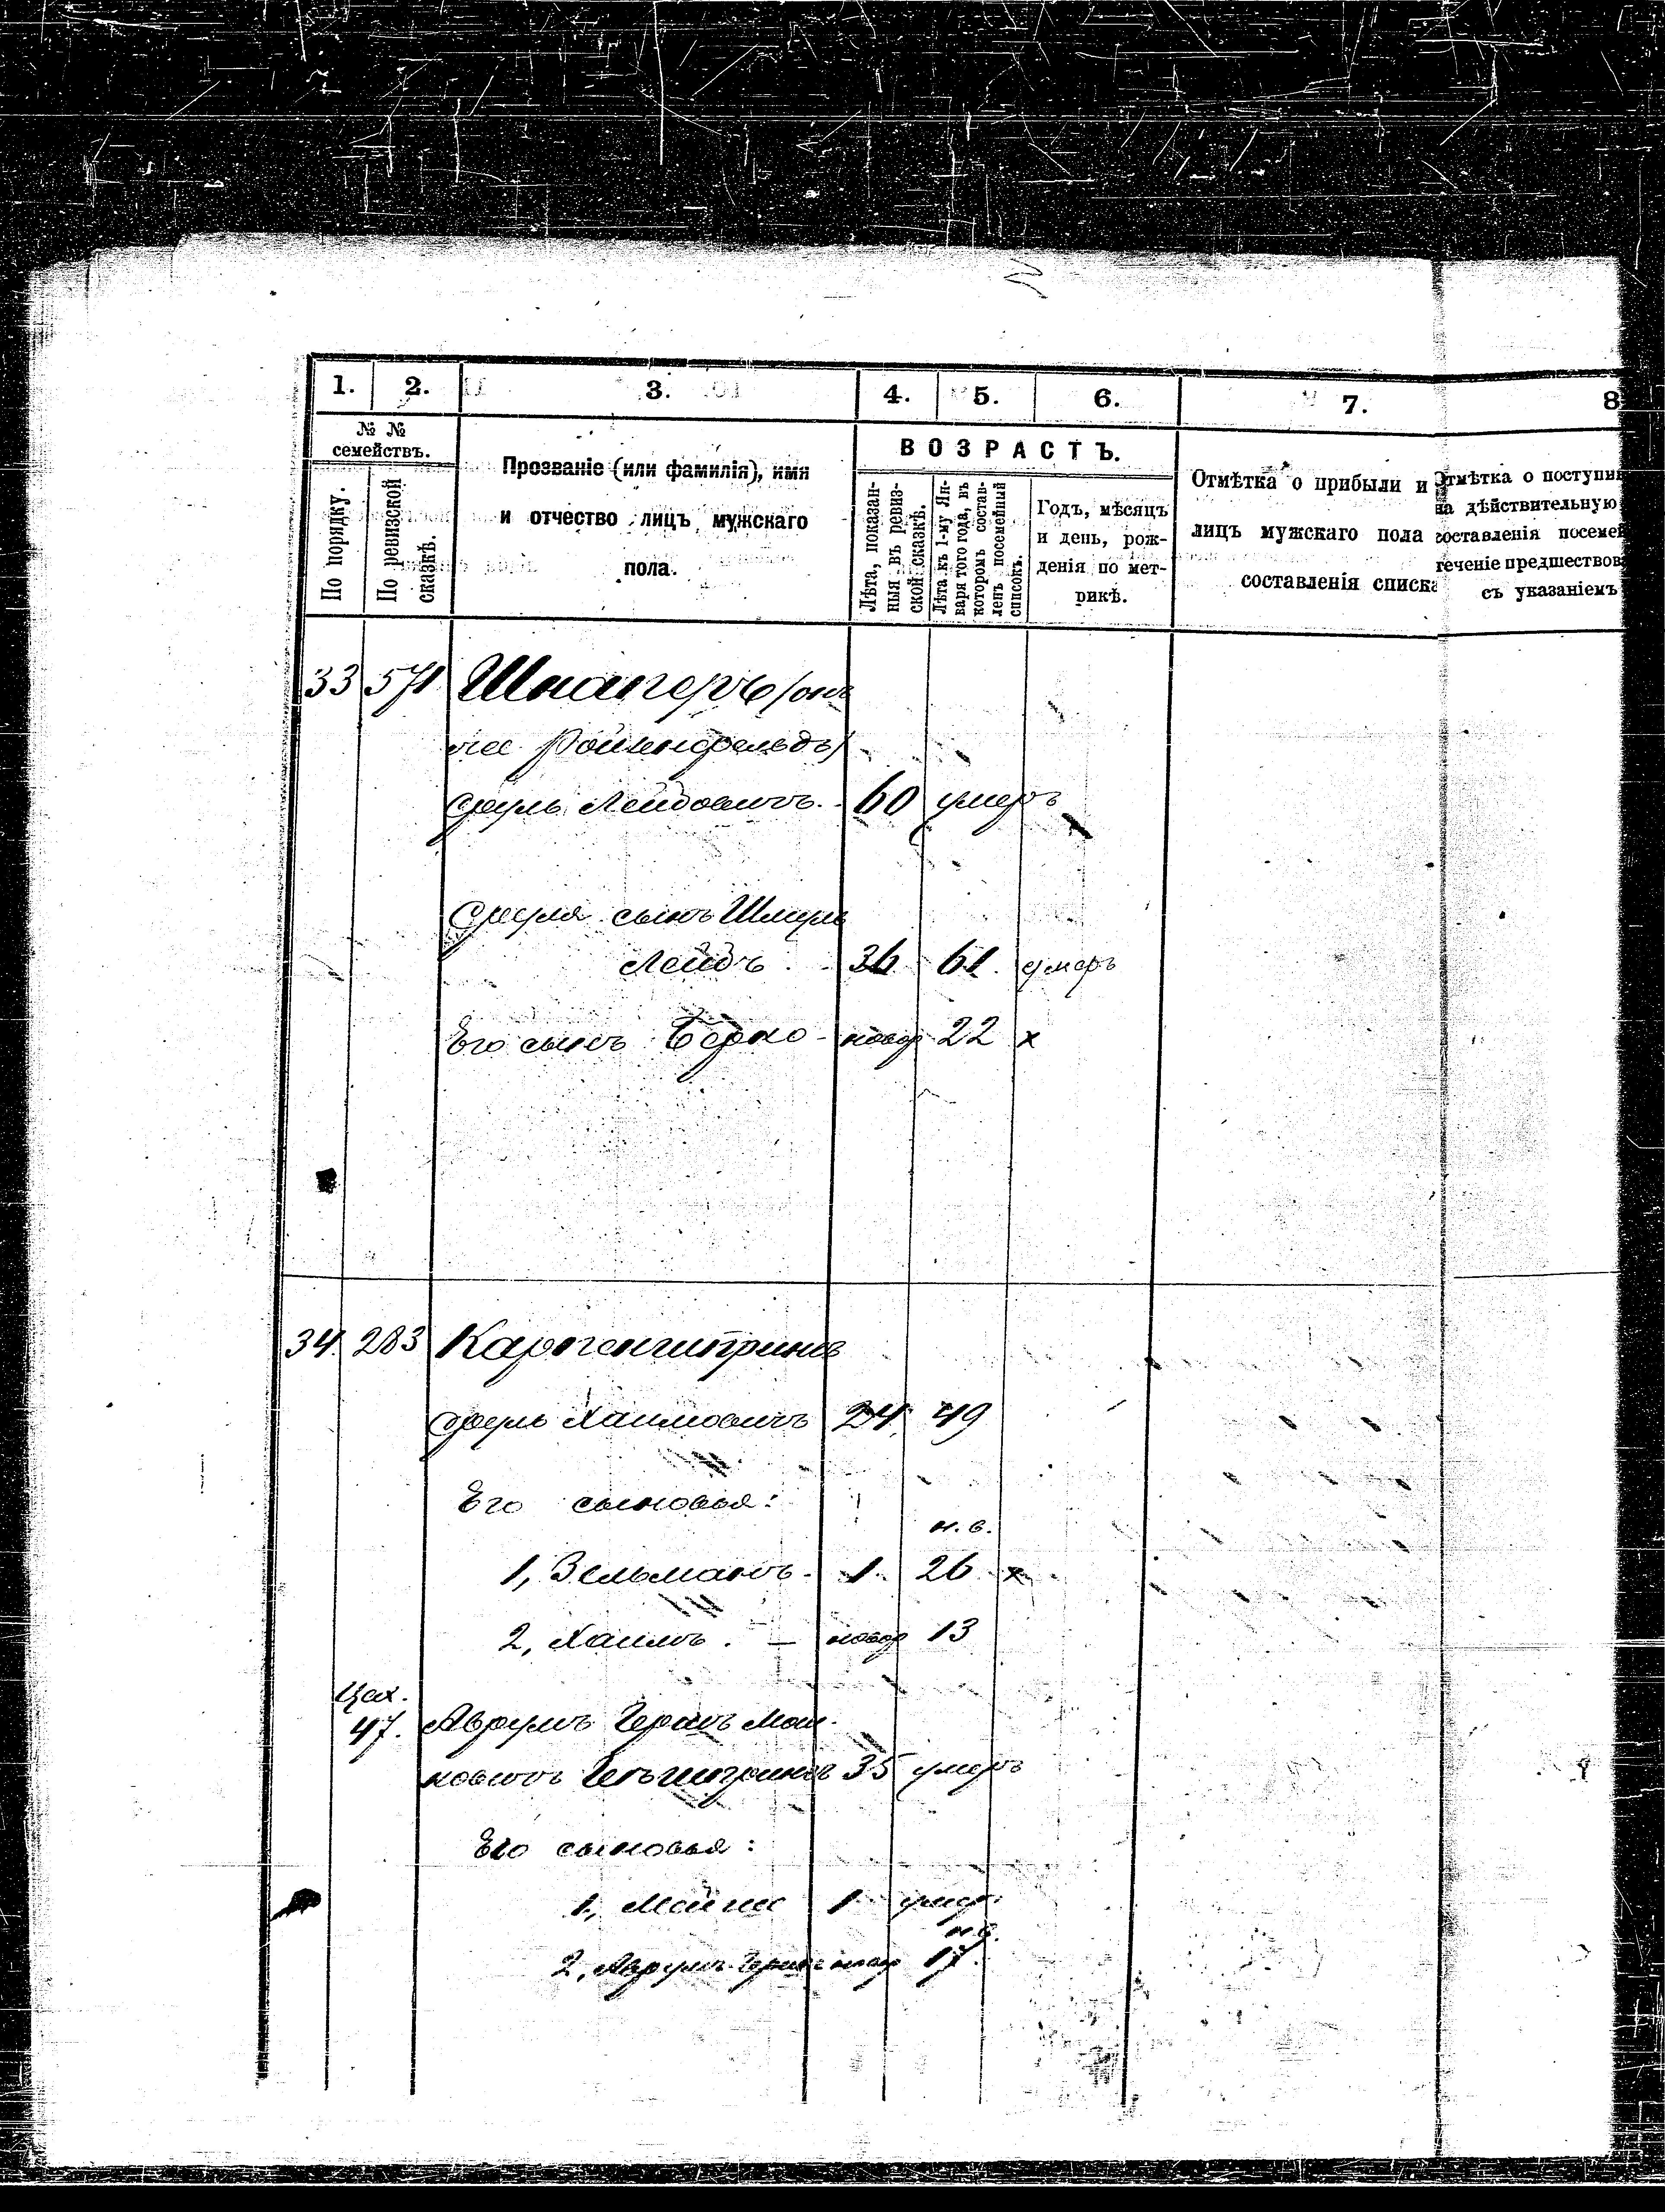 1. 2. 3. 4. 5. 6. 7. 8
№ №
семействъ.
По порядку.
По ревизской
сказкѣ.
Прозваніе (или фамилія), имя
и отчество лицъ мужскаго
пола.
ВОЗРАСТЪ.
Лѣта, показан-
ныя въ ревиз-
ской сказкѣ.
Лѣта къ 1-му Ян-
варя того года, въ
которомъ состав-
ленъ посемейный
списокъ.
Годъ, мѣсяцъ
и день, рож-
денія по мет-
рикѣ.
Отмѣтка о прибыли и
лицъ мужскаго пола
составленія списка
Отмѣтка о поступи
на дѣйствительную
составленія посемей
теченіе предшествов
съ указаніемъ
33 571 Шнаперъ (онъ
же
Лейбовичъ. 60 умеръ
сынъ Шмуль
Лейбъ. 36 61. умеръ
Его сынъ Берко - новор 22 х
34. 283
Хаимовичъ 24 49
Его сыновья:
н. в.
1, Зельманъ - 1 26 х
2, Хаимъ. - новор 13
Цех.
47. Аврумъ Мош-
ковичъ 35 умеръ
Его сыновья:
1, 1 умер.
н в.
2, Аврумъ новор 17.